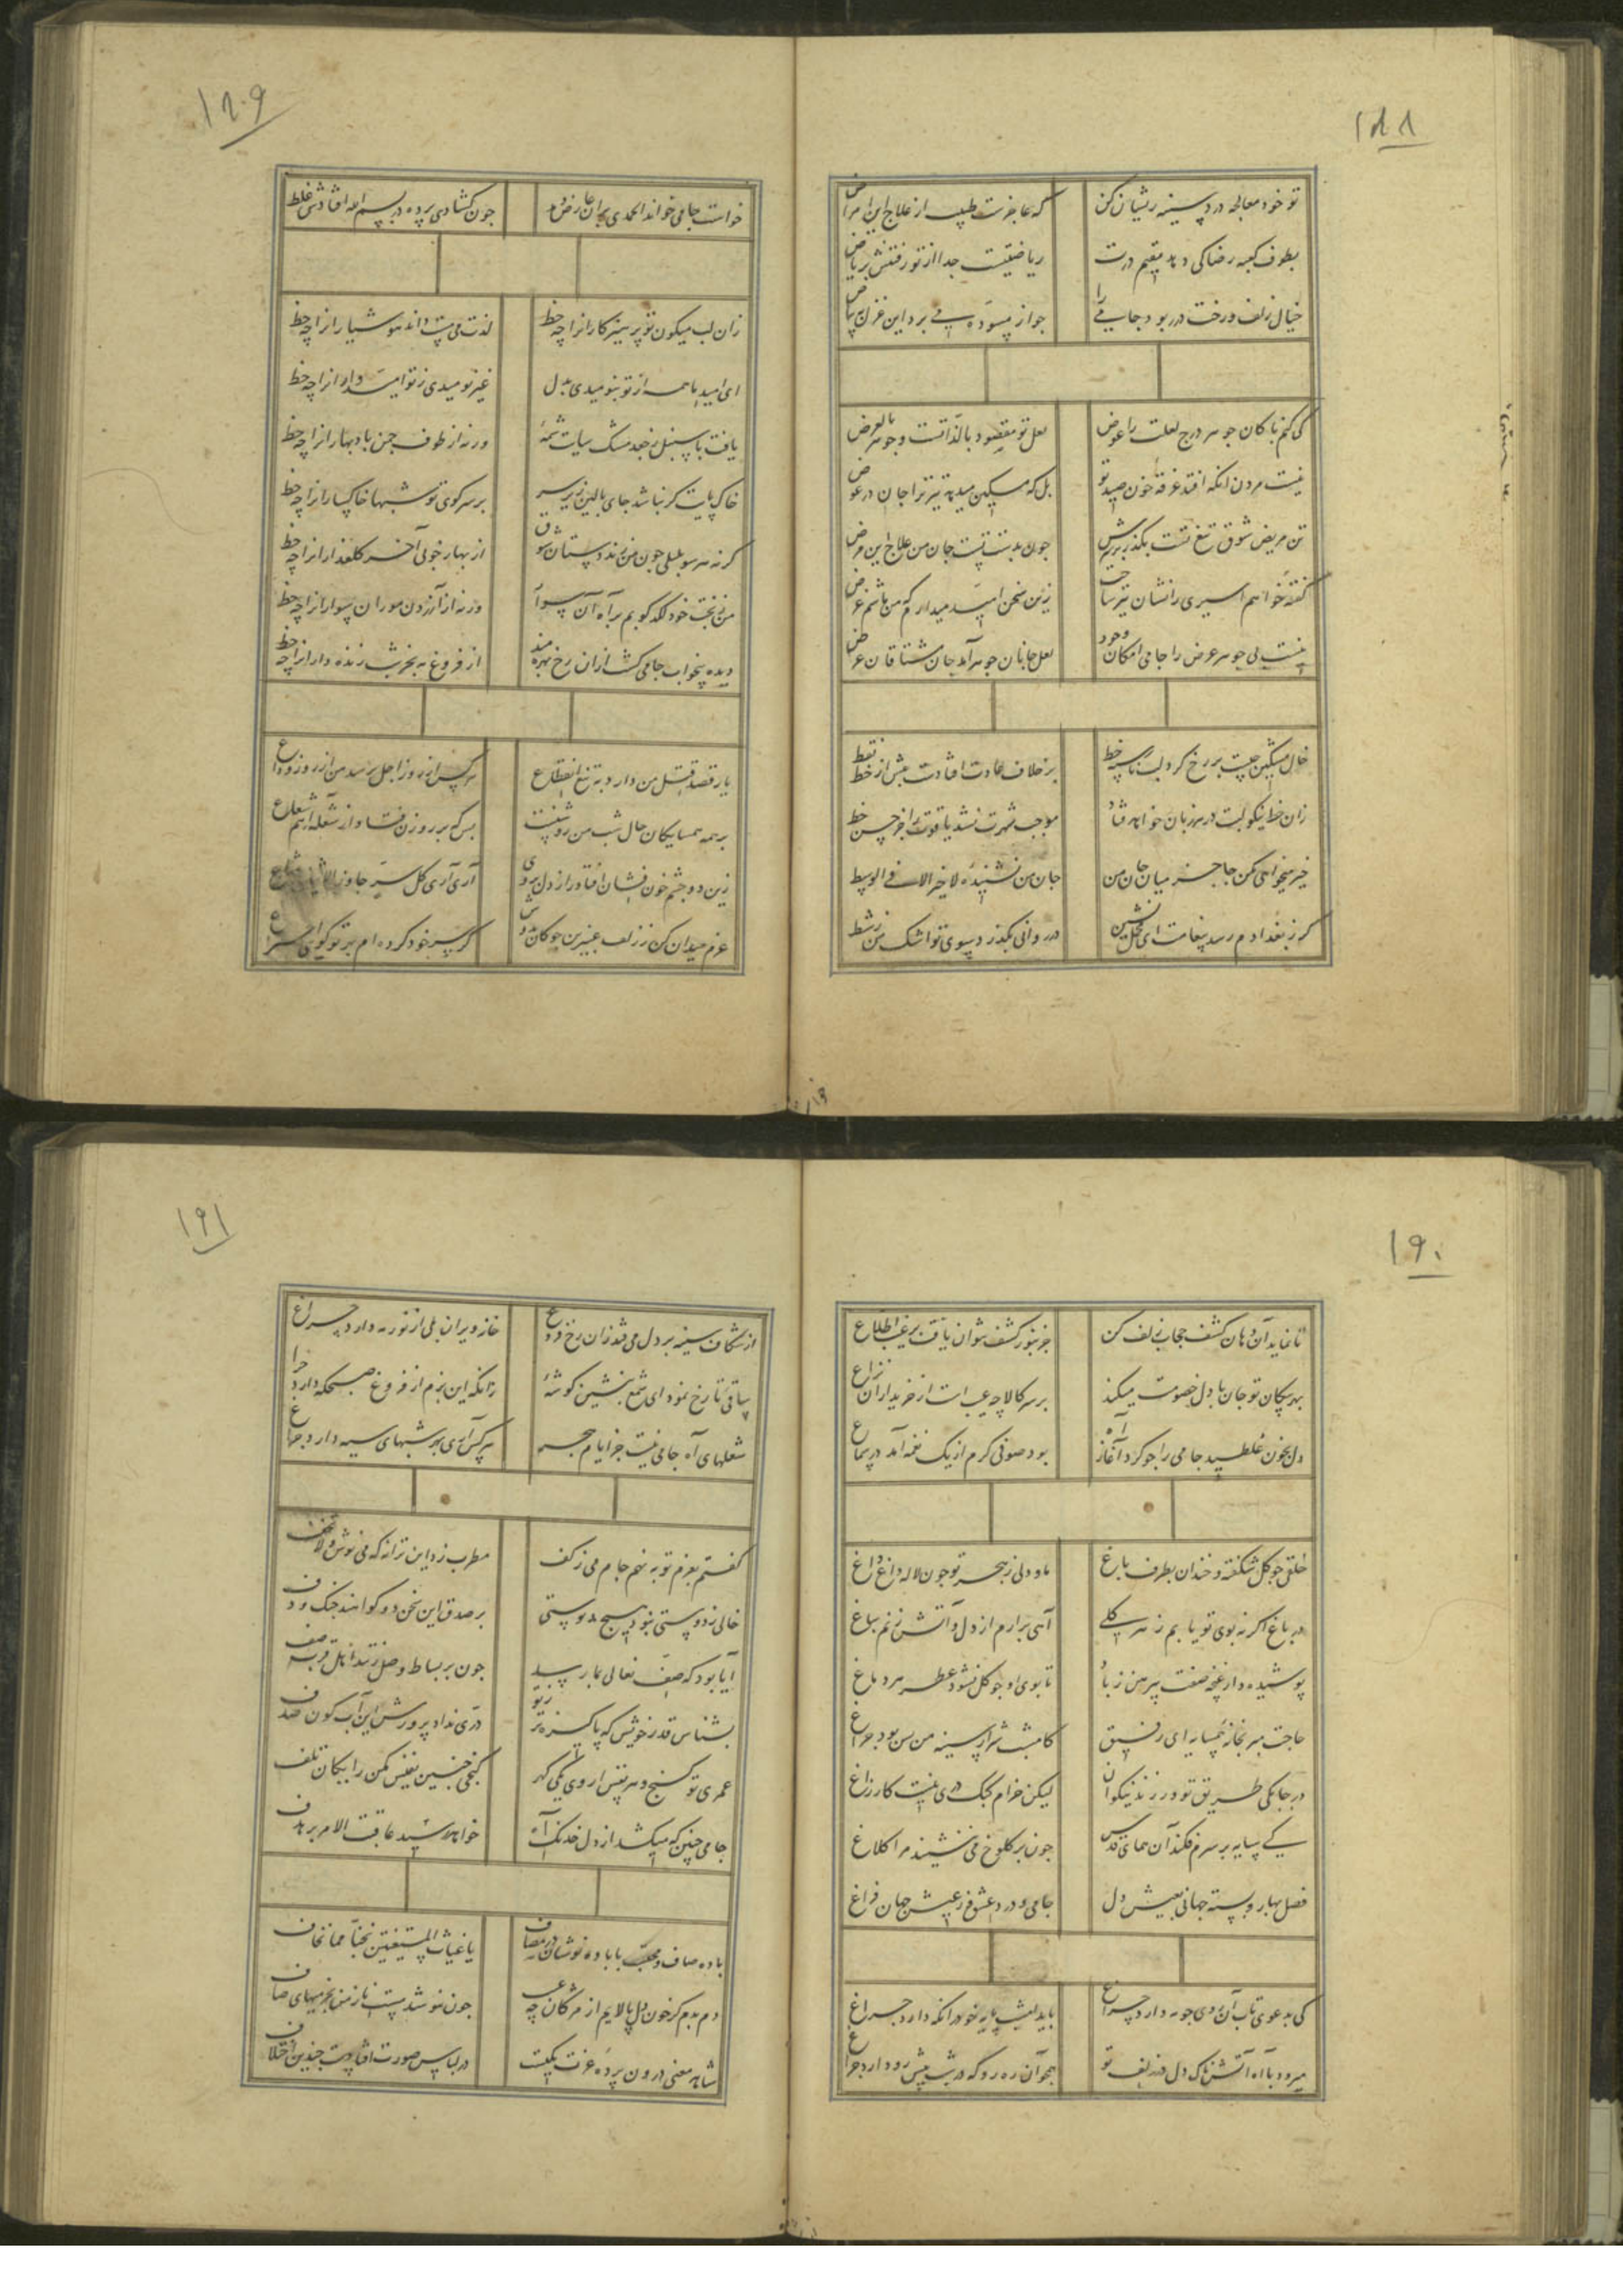 ۱۸۸
تو خود معالجه درد سینه ریشان کن که عاجزست طبیب از علاج این امراض
بطوف کعبه رضا کی دهد مقیم درت ریاضتیست جدا از تو رفتنش بریاض
خیال زلف و رخت در ربود جامی را چو از مسوده پی برد این غزل ببیاض
کی کنم با کان جوهر درج لعلت را عوض لعل تو مقصود بالذاتست و جوهر بالعرض
نیست مردن آنکه افتد غرقه خون صید تو بل که مسکین میدهد تیر ترا جان در عوض
تن مریض شوق تیغ تست بگذر بر سرش چون بدست تست جان من علاج این مرض
گفته خواهم اسیری را نشان تیر ساخت زین سخن امید میدارم که من باشم غرض
نیست بی جوهر عرض را جامی امکان وجود لعل جانان جوهر آمد جان مشتاقان عرض
خال مشکین چیست بر رخ گرد لب نارسته خط بر خلاف عادت افتادست پیش از خط نقط
زان خط نیکو لبت در هر زبان خواهد فتاد موجب شهرت نشد یاقوت را جز حسن خط
خیر میخواهی مکن جا جز میان جان من جان من نشنیده لا خیر الا فی الوسط
گر ز بغدادم رسد پیغامت ای محمل نشین در روانی بگذرد سوی تو اشک من ز شط
۱۸۹
خواست جامی خواند الحمدی بران عارض چون گشادی پرده در بسم الله افتادش غلط
زان لب میگون تو پرهیزکارانرا چه حظ لذت می مست داند هوشیارانرا چه حظ
ای امید ما همه از تو بنومیدی بدل غیر نومیدی ز تو امیدوارانرا چه حظ
یافت با سنبل ز جعد مشک سایت شمه ورنه از طوف چمن باد بهارانرا چه حظ
خاک پایت گر نباشد جای بالین زیر سر بر سر کوی تو شبها خاکسارانرا چه حظ
گر نه هر سو بلبلی چون من زند دستان شوق از بهار خوبی آخر گلعذارانرا چه حظ
من ز بخت خود لگدکوبم براه آن سوار ورنه از آزردن موران سوارانرا چه حظ
دیده بیخواب جامی گشت ازان رخ بهره مند از فروغ مه بجز شب زنده دارانرا چه حظ
یار قصد قتل من دارد به تیغ انقطاع هر کس از روز اجل ترسد من از روز وداع
بر همه همسایگان حال شب من روشنست بس که بر روزن فتاد از شعله آهم شعاع
زین دو چشم خون فشان افتاد راز دل بروی آری آری کل سر جاوز الاثنین شاع
عزم میدان کن ز زلف عنبرین چوگان بدوش کز سر خود کرده ام بر تو گوی اختراع
۱۹۰
تا نماید آن دهان کشف حجاب زلف کن جز بنور کشف نتوان یافت بر غیب اطلاع
بهر پیکان تو جان با دل خصومت میکند بر سر کالا چه عیب است از خریداران نزاع
دل بخون غلطید جامی را چو کرد آغاز آه بود صوفی گرم از یک نغمه آمد در سماع
خلقی چو گل شکفته و خندان بطرف باغ ما و دلی ز هجر تو چون لاله داغ داغ
در باغ اگر نه بوی تو یابم ز هر گلی آهی برآرم از دل و آتش زنم بباغ
پوشیده دار غنچه صفت پیرهن ز باد تا بوی او چو گل نشود عطر هر دماغ
حاجت مبر بخانه همسایه ای رفیق کامشب شرار سینه من بس بود چراغ
در چابکی طریق تو ورزند نیکوان لیکن خرام کبک دری نیست کار زاغ
کی سایه بر سرم فکند آن همای قدس چون بر کلوخ من ننشیند مرا کلاغ
فصل بهار و بسته جهانی بعیش دل جامی و درد عشق و ز عیش جهان فراغ
کی بدعوی تاب آن روی چو مه دارد چراغ باید لیش پایه خود را نگه دارد چراغ
میرود با آه آتشناک دل در زلف تو همچو آن ره رو که در شب پیش ره دارد چراغ
۱۹۱
از شکاف سینه بر دل می فتد زان رخ فروغ خانه ویران بلی از نور مه دارد چراغ
ساقی تا رخ نمود ای شمع بنشین گوشه زانکه این بزم از فروغ صبحگه دارد چراغ
شعلهای آه جامی نیست جز ایام هجر هر کس آری بهر شبهای سیه دارد چراغ
گفتم بعزم توبه نهم جام می ز کف مطرب زد این ترانه که می نوش و لا تخف
خالی ز دوستی نبود هیچ پوستی بر صدق این سخن دو گواهند چنگ و دف
آیا بود که صف نعالی بما رسد چون بر بساط وصل زنند اهل قرب صف
بشناس قدر خویش که پاکیزه تر ز تو دری نداد پرورش این آبگون صدف
عمری تو گنج و هر نفس از وی یکی گهر گنجی چنین نفیس مکن رایگان تلف
جامی چنین که میکشد از دل خدنگ آه خواهد رسید عاقبة الامر بر هدف
باده صاف و محتسب با باده نوشان در مصاف یا غیاث المستغیثین نجنا مما نخاف
دم بدم گر خون دل پالایم از مژگان چه عیب چون نشد مست ناز من بجز میهای صاف
شاهد معنی درون پرده عزت یکیست در لباس صورت افتادست چندین اختلاف